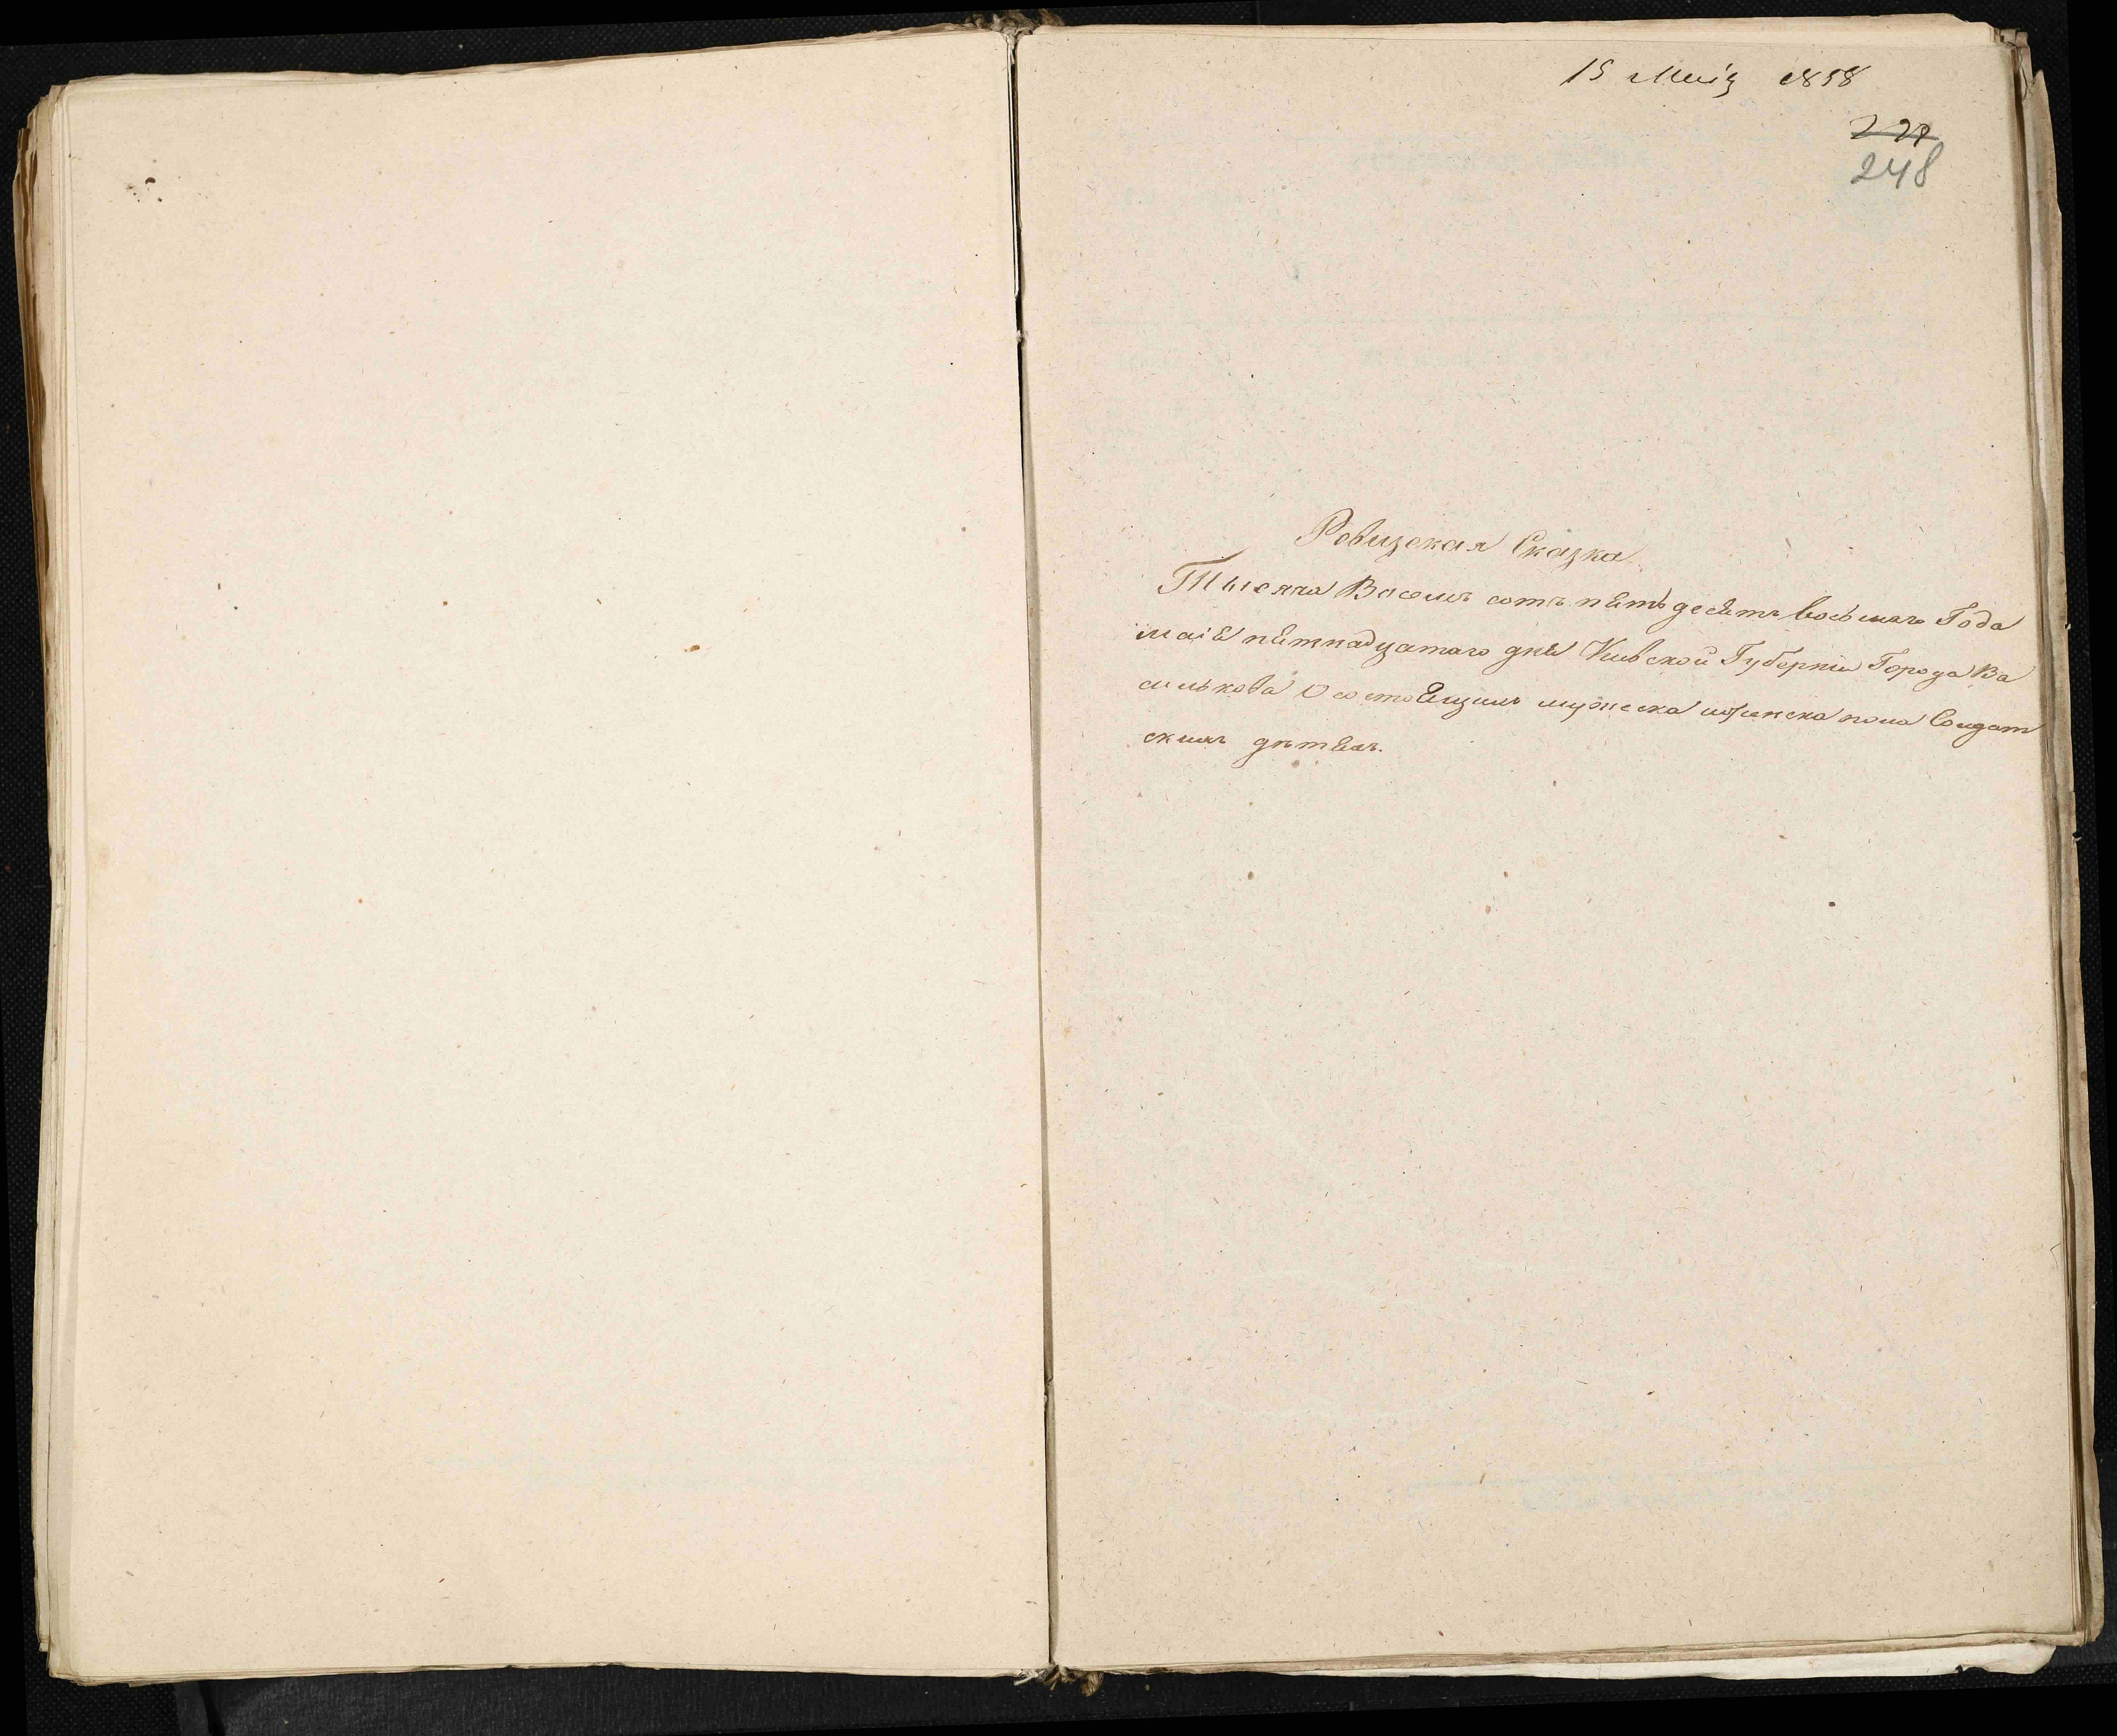 15 Мая 1858
248
Ревизская Сказка
Тысяча Восемь сотъ пятьдесятъ восьмаго Года
маія пятнадцатаго дня Киевской Губерніи Города Ва
силькова О состоящихъ мужеска и женска пола Солдат
скихъ дѣтяхъ.